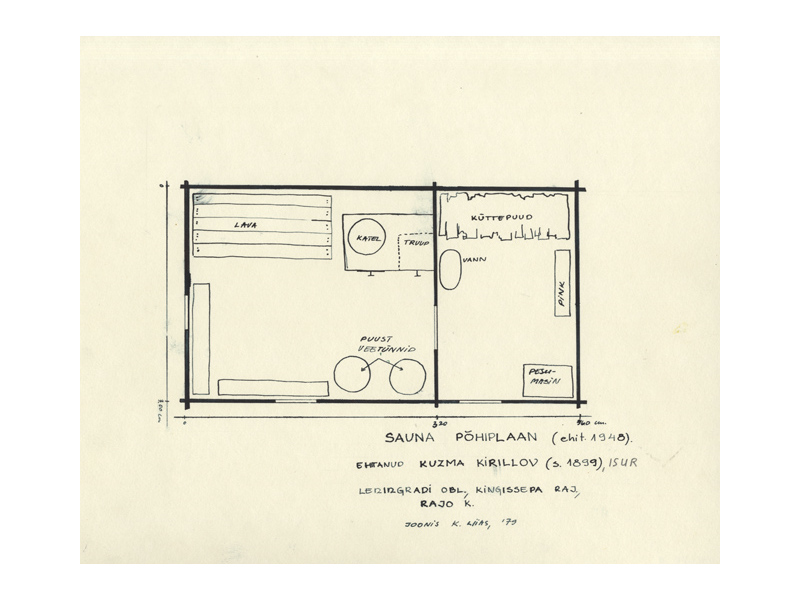 0
LAVA
KATEL
TRUUP
KÜTTEPUUD
VANN
PINK
PUUST
VEETÜNNID
PESU-
MASIN
0
320
cm.
SAUNA PÕHIPLAAN (ehit. 1948).
EHITANUD KUZMA KIRILLOV (s. 1899), ISUR
LENINGRADI OBL., KINGISSEPA RAJ.,
RAJO K.
JOONIS K. LÄÄS, '79